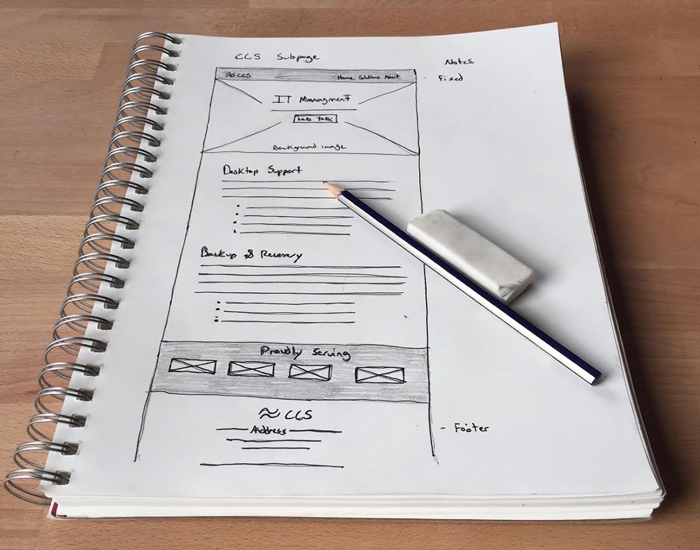 CCS Subpage
Notes
≈CCS Home Solutions About - Fixed
IT Managment
Lets Talk
Background Image
Desktop Support
Backup & Recovery
Proudly Serving
≈ CCS
Address
- Footer